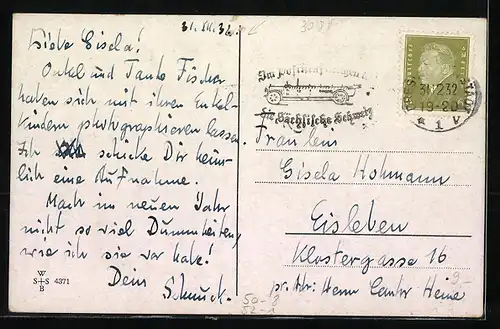 31. XII. 32.
Liebe Gisela!
Onkel und Tante Fischer
haben sich mit ihren Enkel-
kindern photographieren lassen.
Ich schicke Dir heim-
lich eine Aufnahme.
Mach im neuen Jahr
nicht so viel Dummheiten,
wie ich sie vor habe!
Dein
Schnuck.
W
S+S 4371
B
Im Postkraftwagen d.
die Sächsische Schweiz
31.12.32
19-20
* 1 V
Fräulein
Gisela Hohmann
Eisleben
Klostergasse 16
pr. Adr: Herrn Cantor Heine
50-8
52-1
9.-